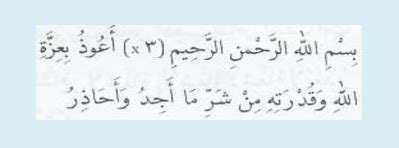 بِسْمِ اللهِ الرَّحْمنِ الرَّحِيمِ (٣ x) أَعُوذُ بِعِزَّةِ
اللهِ وَقُدْرَتِهِ مِنْ شَرِّ مَا أَجِدُ وَأُحَاذِرُ